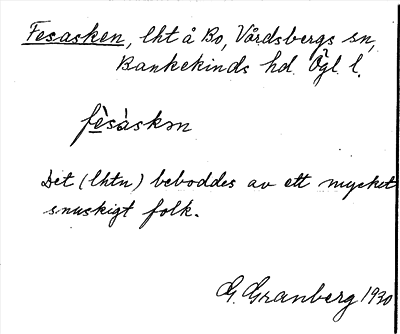 Fesasken, lht å Bo, Vårdsbergs sn,
Bankekinds hd. Ögl. l.
fe̱̍sàskən
Det (lhtn) beboddes av ett mycket
snuskigt folk.
G. Granberg 1930